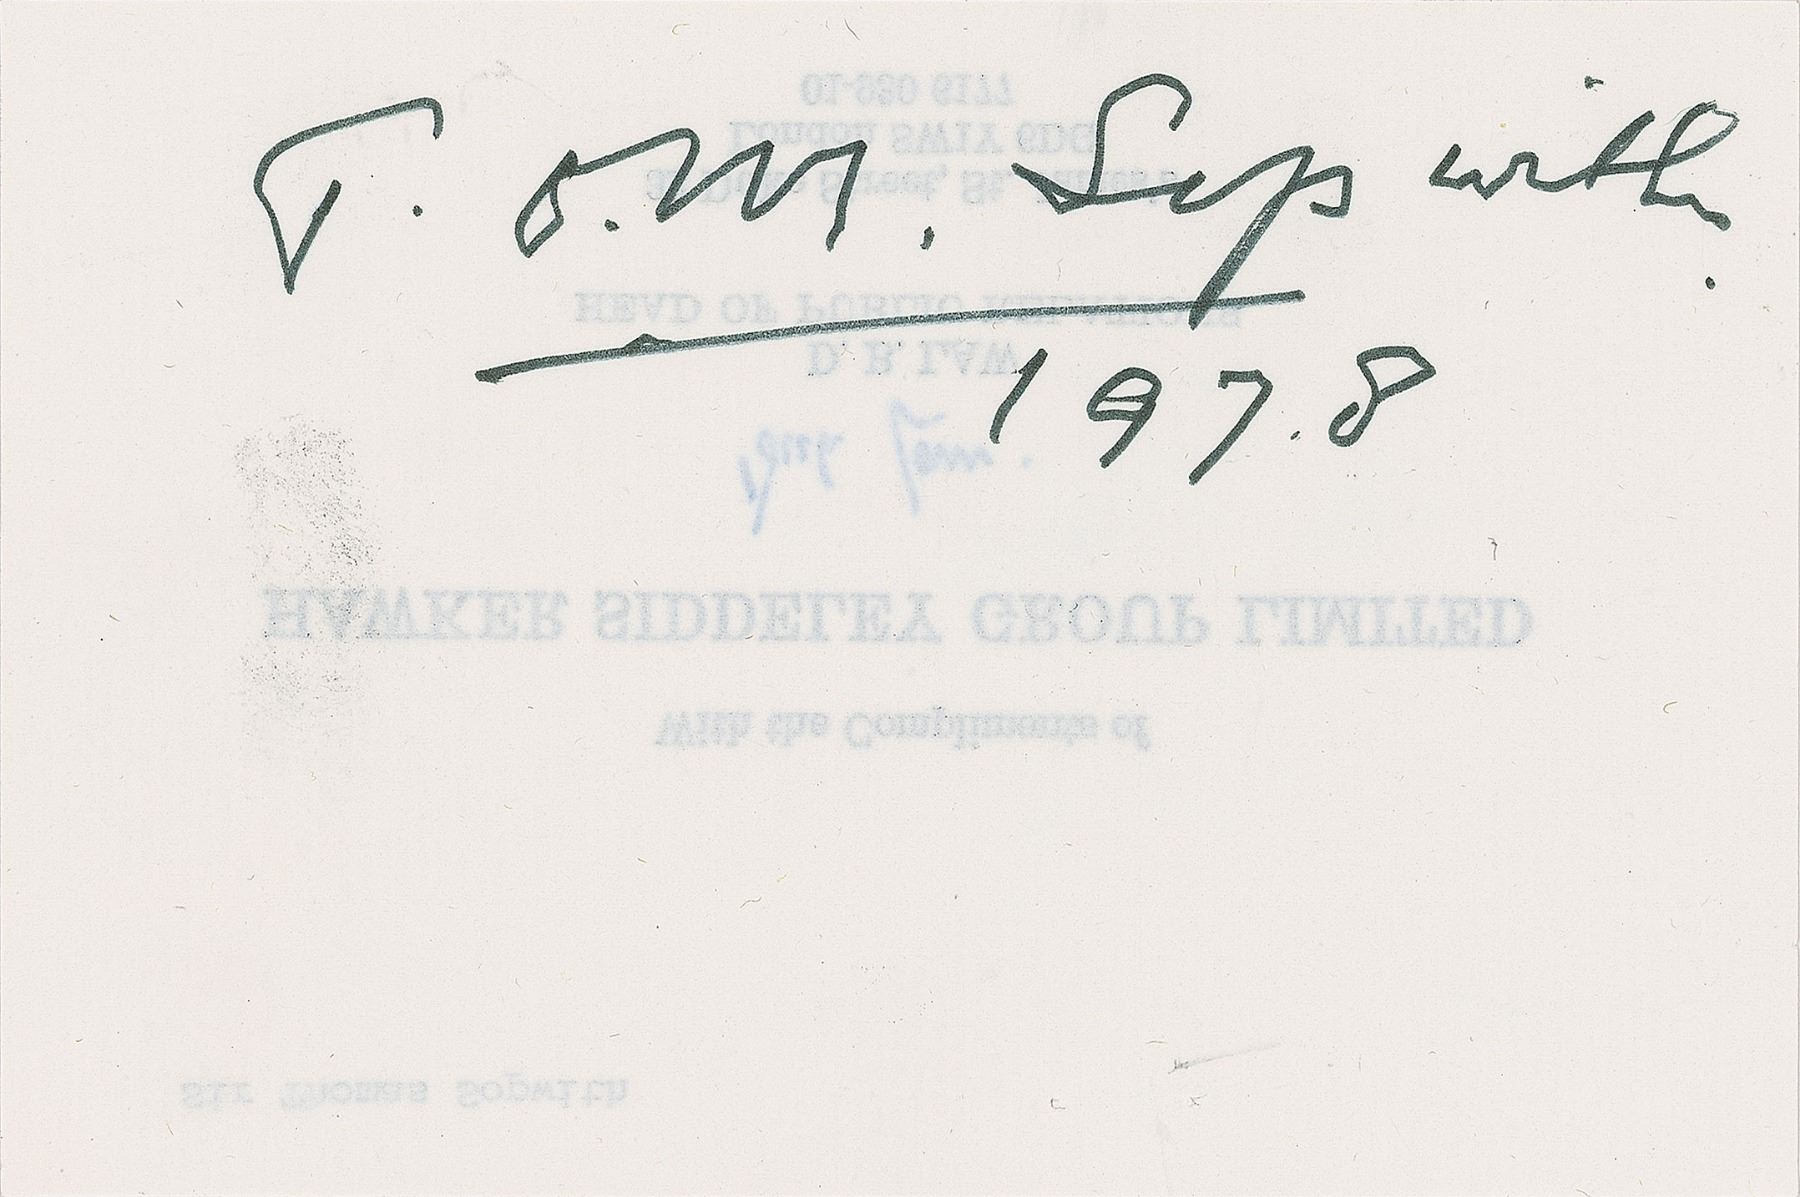 T. O.M. Sopwith.
1978
Sir Thomas Sopwith
With the Compliments of
HAWKER SIDDELEY GROUP LIMITED
D. R. LAW
HEAD OF PUBLIC RELATIONS
Duke Street, St. James's
London SW1Y 6DG
01-930 6177